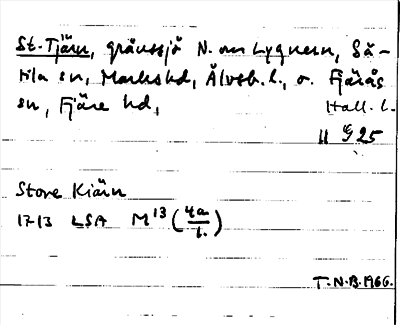 St. Tjärn, gränssjö N. om Lygnern, Sä-
tila sn, Marks hd, Älvsb. l., o. Fjärås
sn, Fjäre hd, Hall. l.
11 G 25
Store Kiärn
1713 LSA M 13 (4a/1.)
T.N.B. 1966.